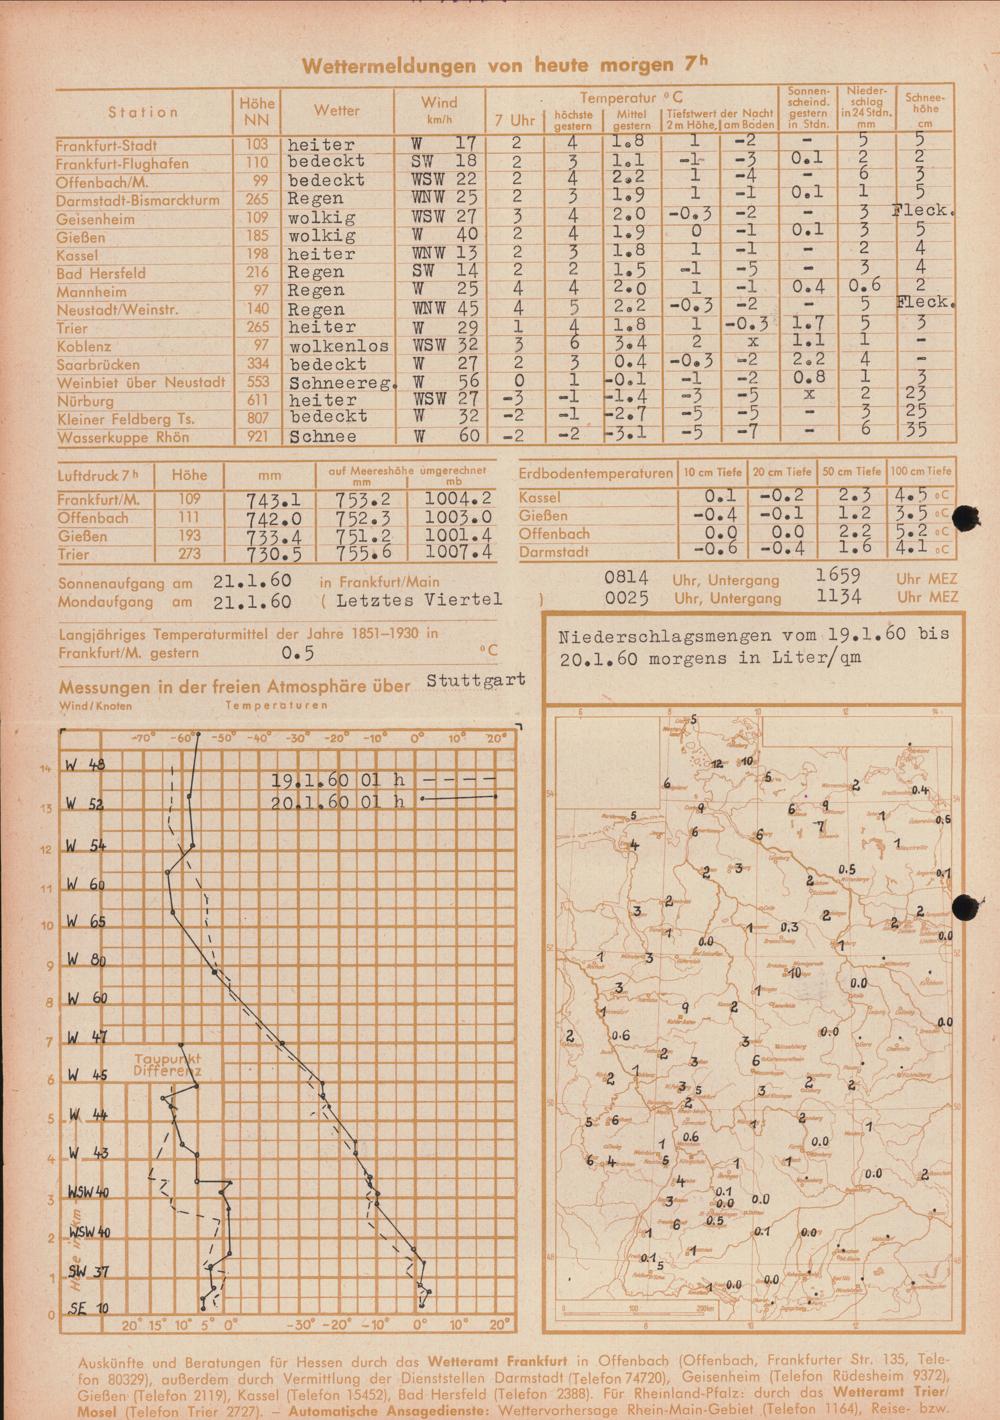 Wettermeldungen von heute morgen 7h
Station Höhe NN Wetter Wind km/h Temperatur °C 7 Uhr höchste gestern Mittel gestern Tiefstwert der Nacht 2 m Höhe, am Boden Sonnen-scheind. gestern in Stdn. Nieder-schlag in 24 Stdn. mm Schnee-höhe cm
Frankfurt-Stadt 103 heiter W 17 2 4 1.8 1 -2 - 5 5
Frankfurt-Flughafen 110 bedeckt SW 18 2 3 1.1 -1 -3 0.1 2 2
Offenbach/M. 99 bedeckt WSW 22 2 4 2.2 1 -4 - 6 3
Darmstadt-Bismarckturm 265 Regen WNW 25 2 3 1.9 1 -1 0.1 1 5
Geisenheim 109 wolkig WSW 27 3 4 2.0 -0.3 -2 - 3 Fleck.
Gießen 185 wolkig W 40 2 4 1.9 0 -1 0.1 3 5
Kassel 198 heiter WNW 13 2 3 1.8 1 -1 - 2 4
Bad Hersfeld 216 Regen SW 14 2 2 1.5 -1 -5 - 3 4
Mannheim 97 Regen W 25 4 4 2.0 1 -1 0.4 0.6 2
Neustadt/Weinstr. 140 Regen WNW 45 4 5 2.2 -0.3 -2 - 5 Fleck.
Trier 265 heiter W 29 1 4 1.8 1 -0.3 1.7 5 3
Koblenz 97 wolkenlos WSW 32 3 6 3.4 2 x 1.1 1 -
Saarbrücken 334 bedeckt W 27 2 3 0.4 -0.3 -2 2.2 4 -
Weinbiet über Neustadt 553 Schneereg. W 56 0 1 -0.1 -1 -2 0.8 1 3
Nürburg 611 heiter WSW 27 -3 -1 -1.4 -3 -5 x 2 23
Kleiner Feldberg Ts. 807 bedeckt W 32 -2 -1 -2.7 -5 -5 - 3 25
Wasserkuppe Rhön 921 Schnee W 60 -2 -2 -3.1 -5 -7 - 6 35
Luftdruck 7h Höhe mm auf Meereshöhe umgerechnet mm mb
Frankfurt/M. 109 743.1 753.2 1004.2
Offenbach 111 742.0 752.3 1003.0
Gießen 193 733.4 751.2 1001.4
Trier 273 730.5 755.6 1007.4
Erdbodentemperaturen 10 cm Tiefe 20 cm Tiefe 50 cm Tiefe 100 cm Tiefe
Kassel 0.1 -0.2 2.3 4.5 °C
Gießen -0.4 -0.1 1.2 3.5 °C
Offenbach 0.0 0.0 2.2 5.2 °C
Darmstadt -0.6 -0.4 1.6 4.1 °C
Sonnenaufgang am 21.1.60 in Frankfurt/Main 0814 Uhr, Untergang 1659 Uhr MEZ
Mondaufgang am 21.1.60 ( Letztes Viertel ) 0025 Uhr, Untergang 1134 Uhr MEZ
Langjähriges Temperaturmittel der Jahre 1851–1930 in
Frankfurt/M. gestern 0.5 °C
Niederschlagsmengen vom 19.1.60 bis
20.1.60 morgens in Liter/qm
Messungen in der freien Atmosphäre über Stuttgart
Wind/Knoten Temperaturen
-70° -60° -50° -40° -30° -20° -10° 0° 10° 20°
14 W 48
19.1.60 01 h
13 W 52
20.1.60 01 h
12 W 54
11 W 60
10 W 65
9 W 80
8 W 60
7 W 47
Taupunkt
Differenz
6 W 45
5 W 44
4 W 43
3 WSW 40
2 WSW 40
1 SW 37
0 SE 10
Höhe in Km
20° 15° 10° 5° 0° -30° -20° -10° 0° 10° 20°
Auskünfte und Beratungen für Hessen durch das Wetteramt Frankfurt in Offenbach (Offenbach, Frankfurter Str. 135, Tele-
fon 80329), außerdem durch Vermittlung der Dienststellen Darmstadt (Telefon 74720), Geisenheim (Telefon Rüdesheim 9372),
Gießen (Telefon 2119), Kassel (Telefon 15452), Bad Hersfeld (Telefon 2388). Für Rheinland-Pfalz: durch das Wetteramt Trier/
Mosel (Telefon Trier 2727). – Automatische Ansagedienste: Wettervorhersage Rhein-Main-Gebiet (Telefon 1164), Reise- bzw.